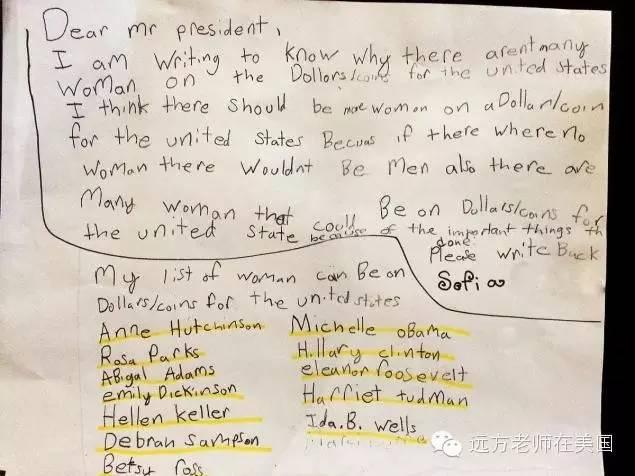 Dear mr president,
I am writing to know why there arent many
woman on the Dollors/coins for the united states
I think there should be more woman on a Dollar/coin
for the united states Becuas if there where no
woman there wouldnt Be men also there are
Many woman that could Be on Dollars/coins for
the united state because of the important things th
done.
Please write Back
Sofia
My list of woman can Be on
Dollars/coins for the united states
Anne Hutchinson
Rosa Parks
Abigal Adams
emily Dickinson
Hellen keller
Debrah sampson
Betsy Ross
Michelle obama
Hillary clinton
eleanor roosevelt
Harriet tudman
Ida.B. wells
远方老师在美国